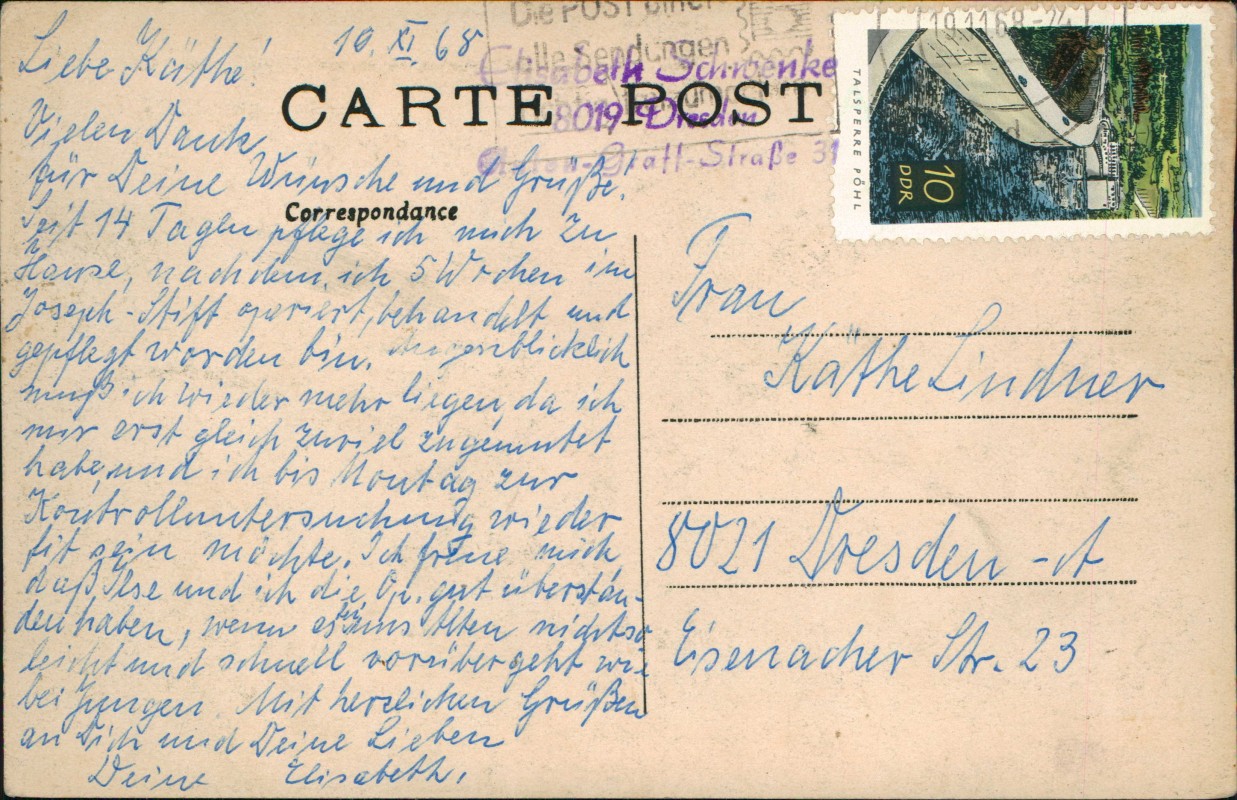 Die POST
lle Sendungen
19.11.68-24
Elisabeth Schwenke
8019 Dresden
-Graff-Straße 31
CARTE POST
TALSPERRE PÖHL
10
DDR
Correspondance
10. XI. 68
Liebe Käthe!
Vielen Dank
für Deine Wünsche und Grüße!
Seit 14 Tagen pflege ich mich zu
Hause, nachdem ich 5 Wochen im
Joseph-Stift operiert, behandelt und
gepflegt worden bin. Augenblicklich
muß ich wieder mehr liegen, da ich
mir erst gleich zuviel zugemutet
habe, und ich bis Montag zur
Kontrolluntersuchung wieder
fit sein möchte. Ich freue mich
daß Ilse und ich die Op. gut überstan-
den haben, wenn es bei uns Alten nicht so
leicht und schnell vorübergeht wie
bei Jungen. Mit herzlichen Grüßen
an Dich und Deine Lieben
Deine Elisabeth.
Frau
Käthe Lindner
8021 Dresden-A
Eisenacher Str. 23